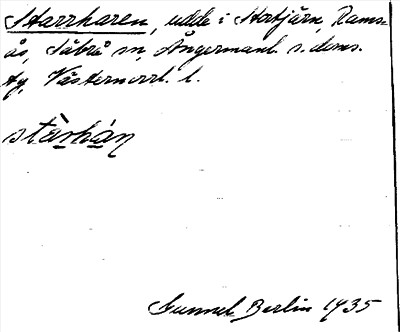 Starrharen, udde i Stortjärn, Rams-
ås, Säbrå sn, Ångermanl. s. doms.
tg, Västernorrl. l.
stàrhàn
Gunnel Berlin 1935